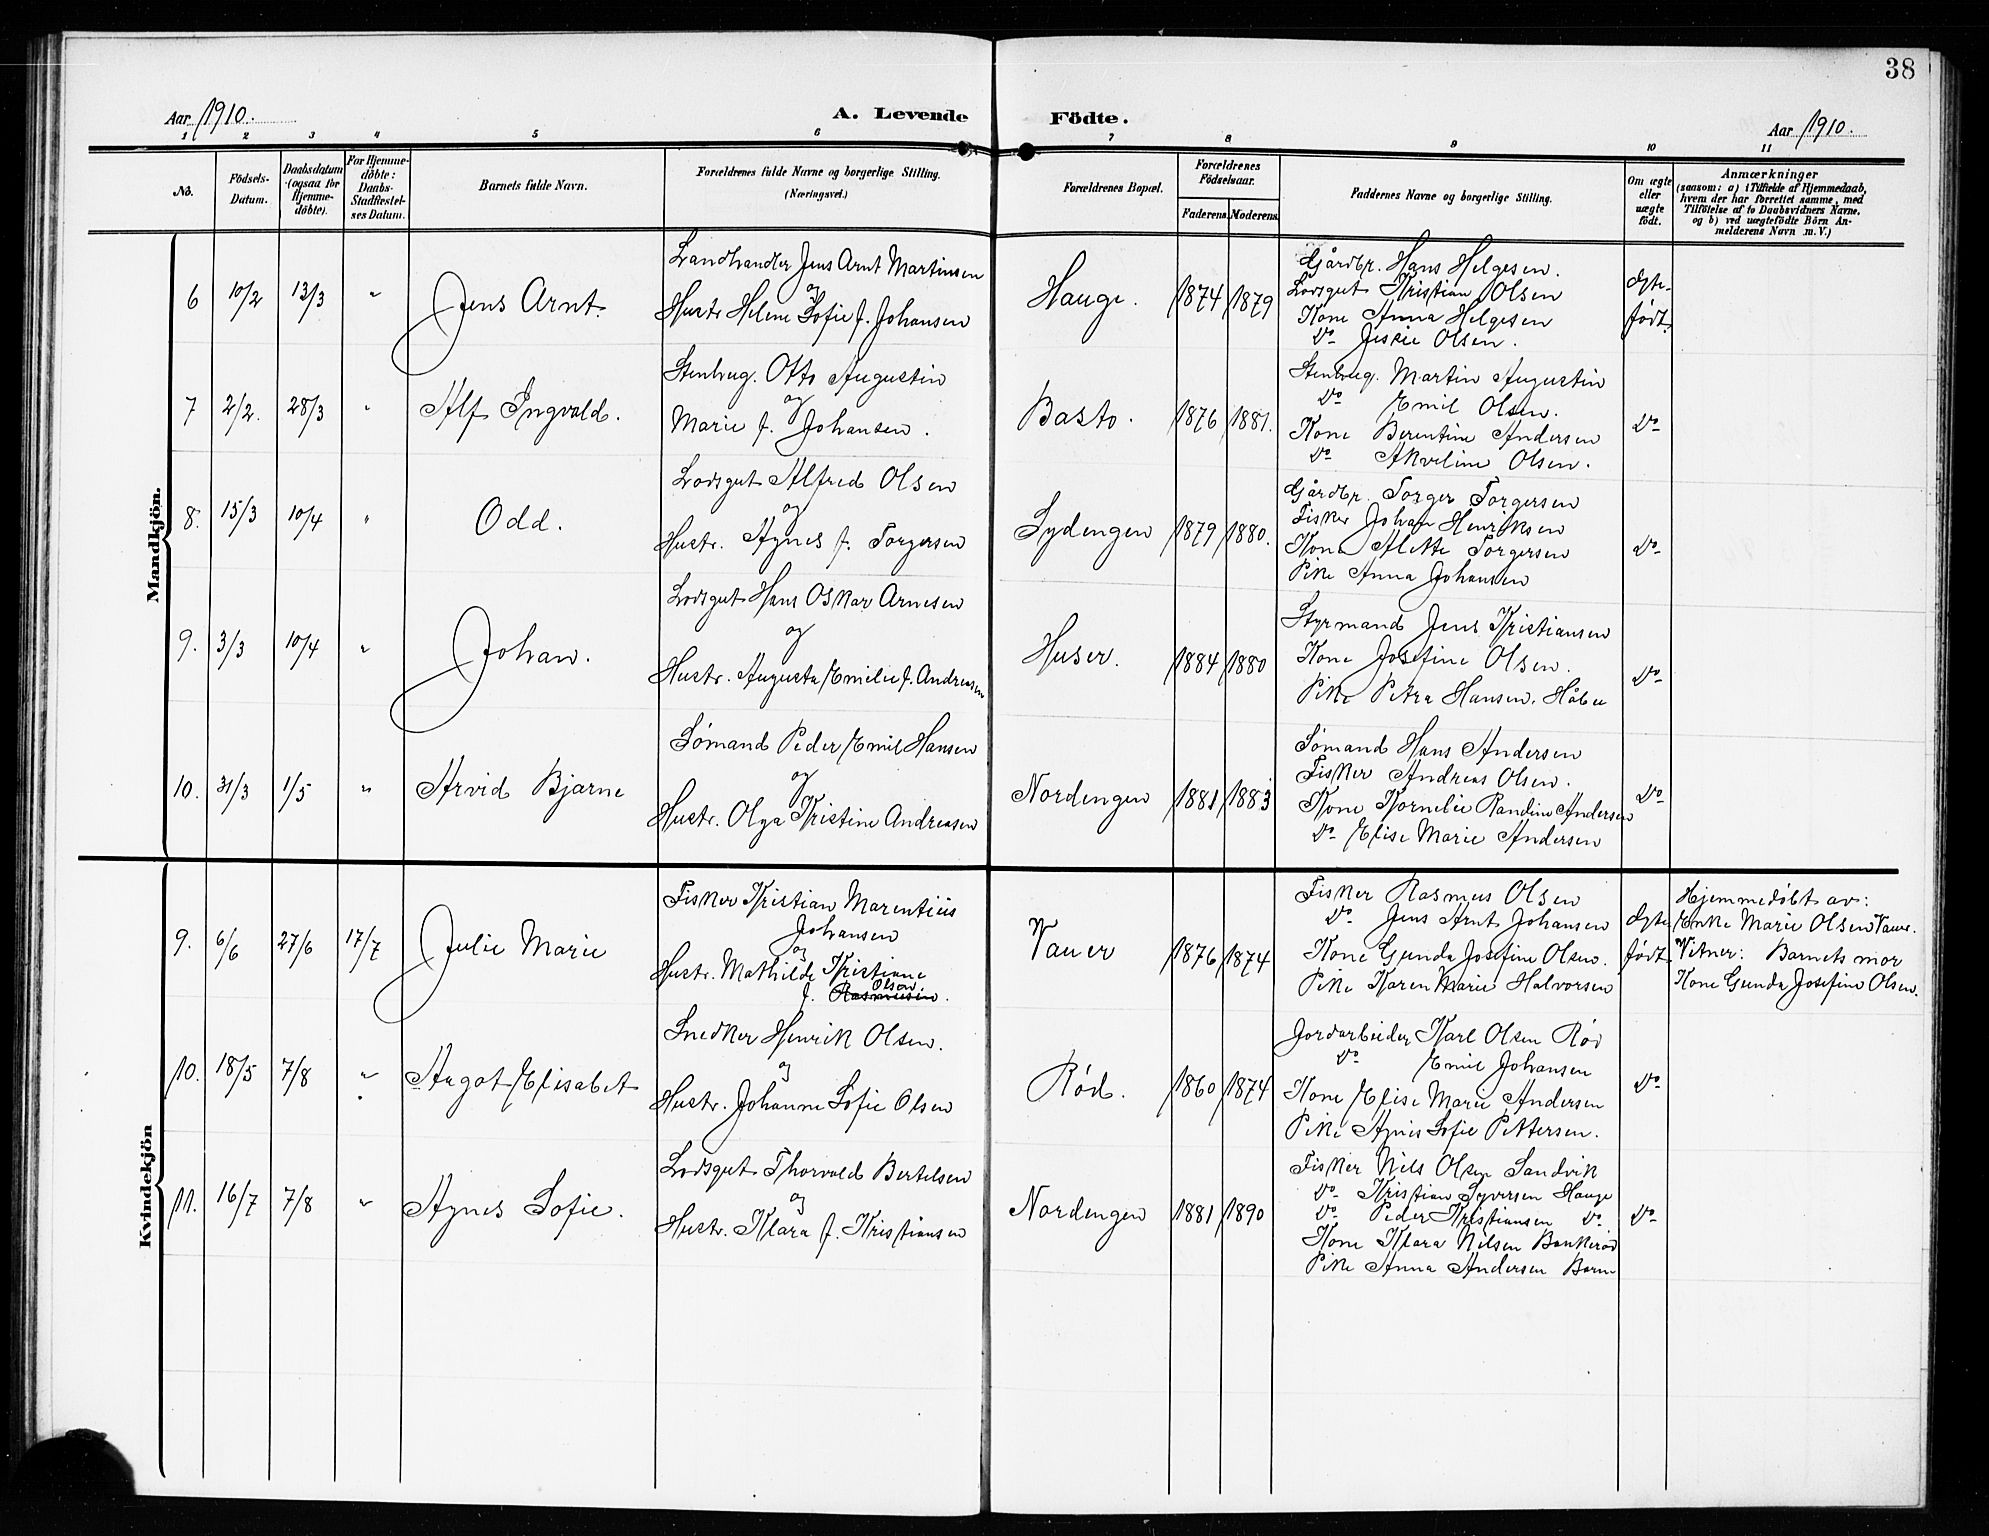 38
Aar 1910.
A. Levende Födte.
Aar 1910.
1 2 3 4 5 6 7 8 9 10 11
No.
Födsels-Datum.
Daabsdatum (ogsaa for Hjemmedöbte).
For Hjemmedöbte: Daabs-Stadfestelses Datum.
Barnets fulde Navn.
Forældrenes fulde Navne og borgerlige Stilling.
(Næringsvei.)
Forældrenes Bopæl.
Forældrenes Födselsaar.
Faderens. Moderens.
Faddernes Navne og borgerlige Stilling.
Om ægte eller uægte födt.
Anmærkninger
(saasom: a) i Tilfælde af Hjemmedaab,
hvem der har forrettet samme, med
Tilföielse af to Daabsvidners Navne,
og b) ved uægtefödte Börn An-
melderens Navn m. V.)
Mandkjön.
6 10/2 13/3 " Jens Arnt.
Landhandler Jens Arnt Martinsen
og
Hustr Helene Sofie f. Johansen
Hauge. 1874 1879
Gårdbr. Hans Helgesen.
Lodsgut Kristian Olsen
Kone Anna Helgesen
Do Jeskie Olsen.
Ægte-
født.
7 2/2. 28/3 " Alf Ingvald.
Stenhug. Otto Augustin
og
Marie f. Johansen.
Basto. 1876 1881.
Stenhug. Martin Augustin
Do Emil Olsen.
Kone Berentine Andersen
Do Akveline Olsen.
Do
8. 15/3 10/4 " Odd.
Lodsgut Alfred Olsen
og
Hustr. Agnes f. Torgersen
Sydengen 1879 1880.
Gårdbr. Torger Torgersen
Fisker Johan Henriksen
Kone Alette Torgersen
Pike Anna Johansen
Do
9. 3/3 10/4 " Johan.
Lodsgut Hans Oskar Arnesen
og
Hustr. Augusta Emilie f. Andreasen
Huser. 1884 1880
Styrmand Jens Kristiansen
Kone Josefine Olsen.
Pike Petra Hansen. Håbu
Do
10. 31/3 1/5 " Arvid Bjarne
Sømand Peder Emil Hansen
og
Hustr. Olga Kristine Andreasen
Nordengen 1881 1883
Sømand Hans Andersen
Fisker Andreas Olsen.
Kone Kornelie Randine Andersen
Do Elise Marie Andersen
Do
Kvindekjön
9. 6/6 27/6 17/7 Julie Marie
Fisker Kristian Marentius
Johansen
og
Hustr. Mathilde Kristiane
Olsen
f. Rasmussen.
Vauer 1876 1874
Fisker Rasmus Olsen
Do Jens Arnt Johansen
Kone Gunda Josefine Olsen.
Pike Karen Marie Halvorsen
Ægte
født.
Hjemmedøbt av:
Enke Marie Olsen Vauer.
Vitner: Barnets mor
Kone Gunda Josefine Olsen.
10. 18/5 7/8 " Aagot Elisabet
Snedker Henrik Olsen.
og
Hustr. Johanne Sofie Olsen
Rød. 1860 1874
Jordarbeider Karl Olsen Rød
Do Emil Johansen
Kone Elise Marie Andersen
Pike Agnes Sofie Pettersen.
Do
11. 16/7 7/8 " Agnes Sofie.
Lodsgut Thorvald Bertelsen
og
Hustr. Klara f. Kristiansen
Nordengen 1881 1890
Fisker Nils Olsen Sandvik
Do Kristian Syversen Hauge
Do Peder Kristiansen Do
Kone Klara Nilsen Bankerød
Pike Anna Andersen Barm
Do